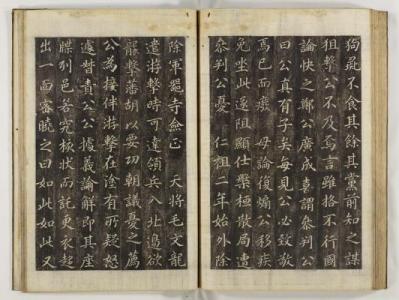 狗彘不食其餘其黨前知之謀
狙擊公不及焉言雖格不行國
論快之鄭公廣成喜謂叅判公
曰公真有子矣每見公必致敬
焉已而癈母論復煽公移疾
免坐此遂阻顯仕槩極散局遭
叅判公憂 仁祖二年始外除
除軍器寺僉正 天將毛文龍
遣游擊時可達領兵入北邊欲
襲擊藩胡以要功朝議憂之薦
公為接伴游擊在塗有所疑怒
遽替責公公援義論解即其座
牒列邑若究核狀而託更衣起
出一面密曉之曰如此如此又